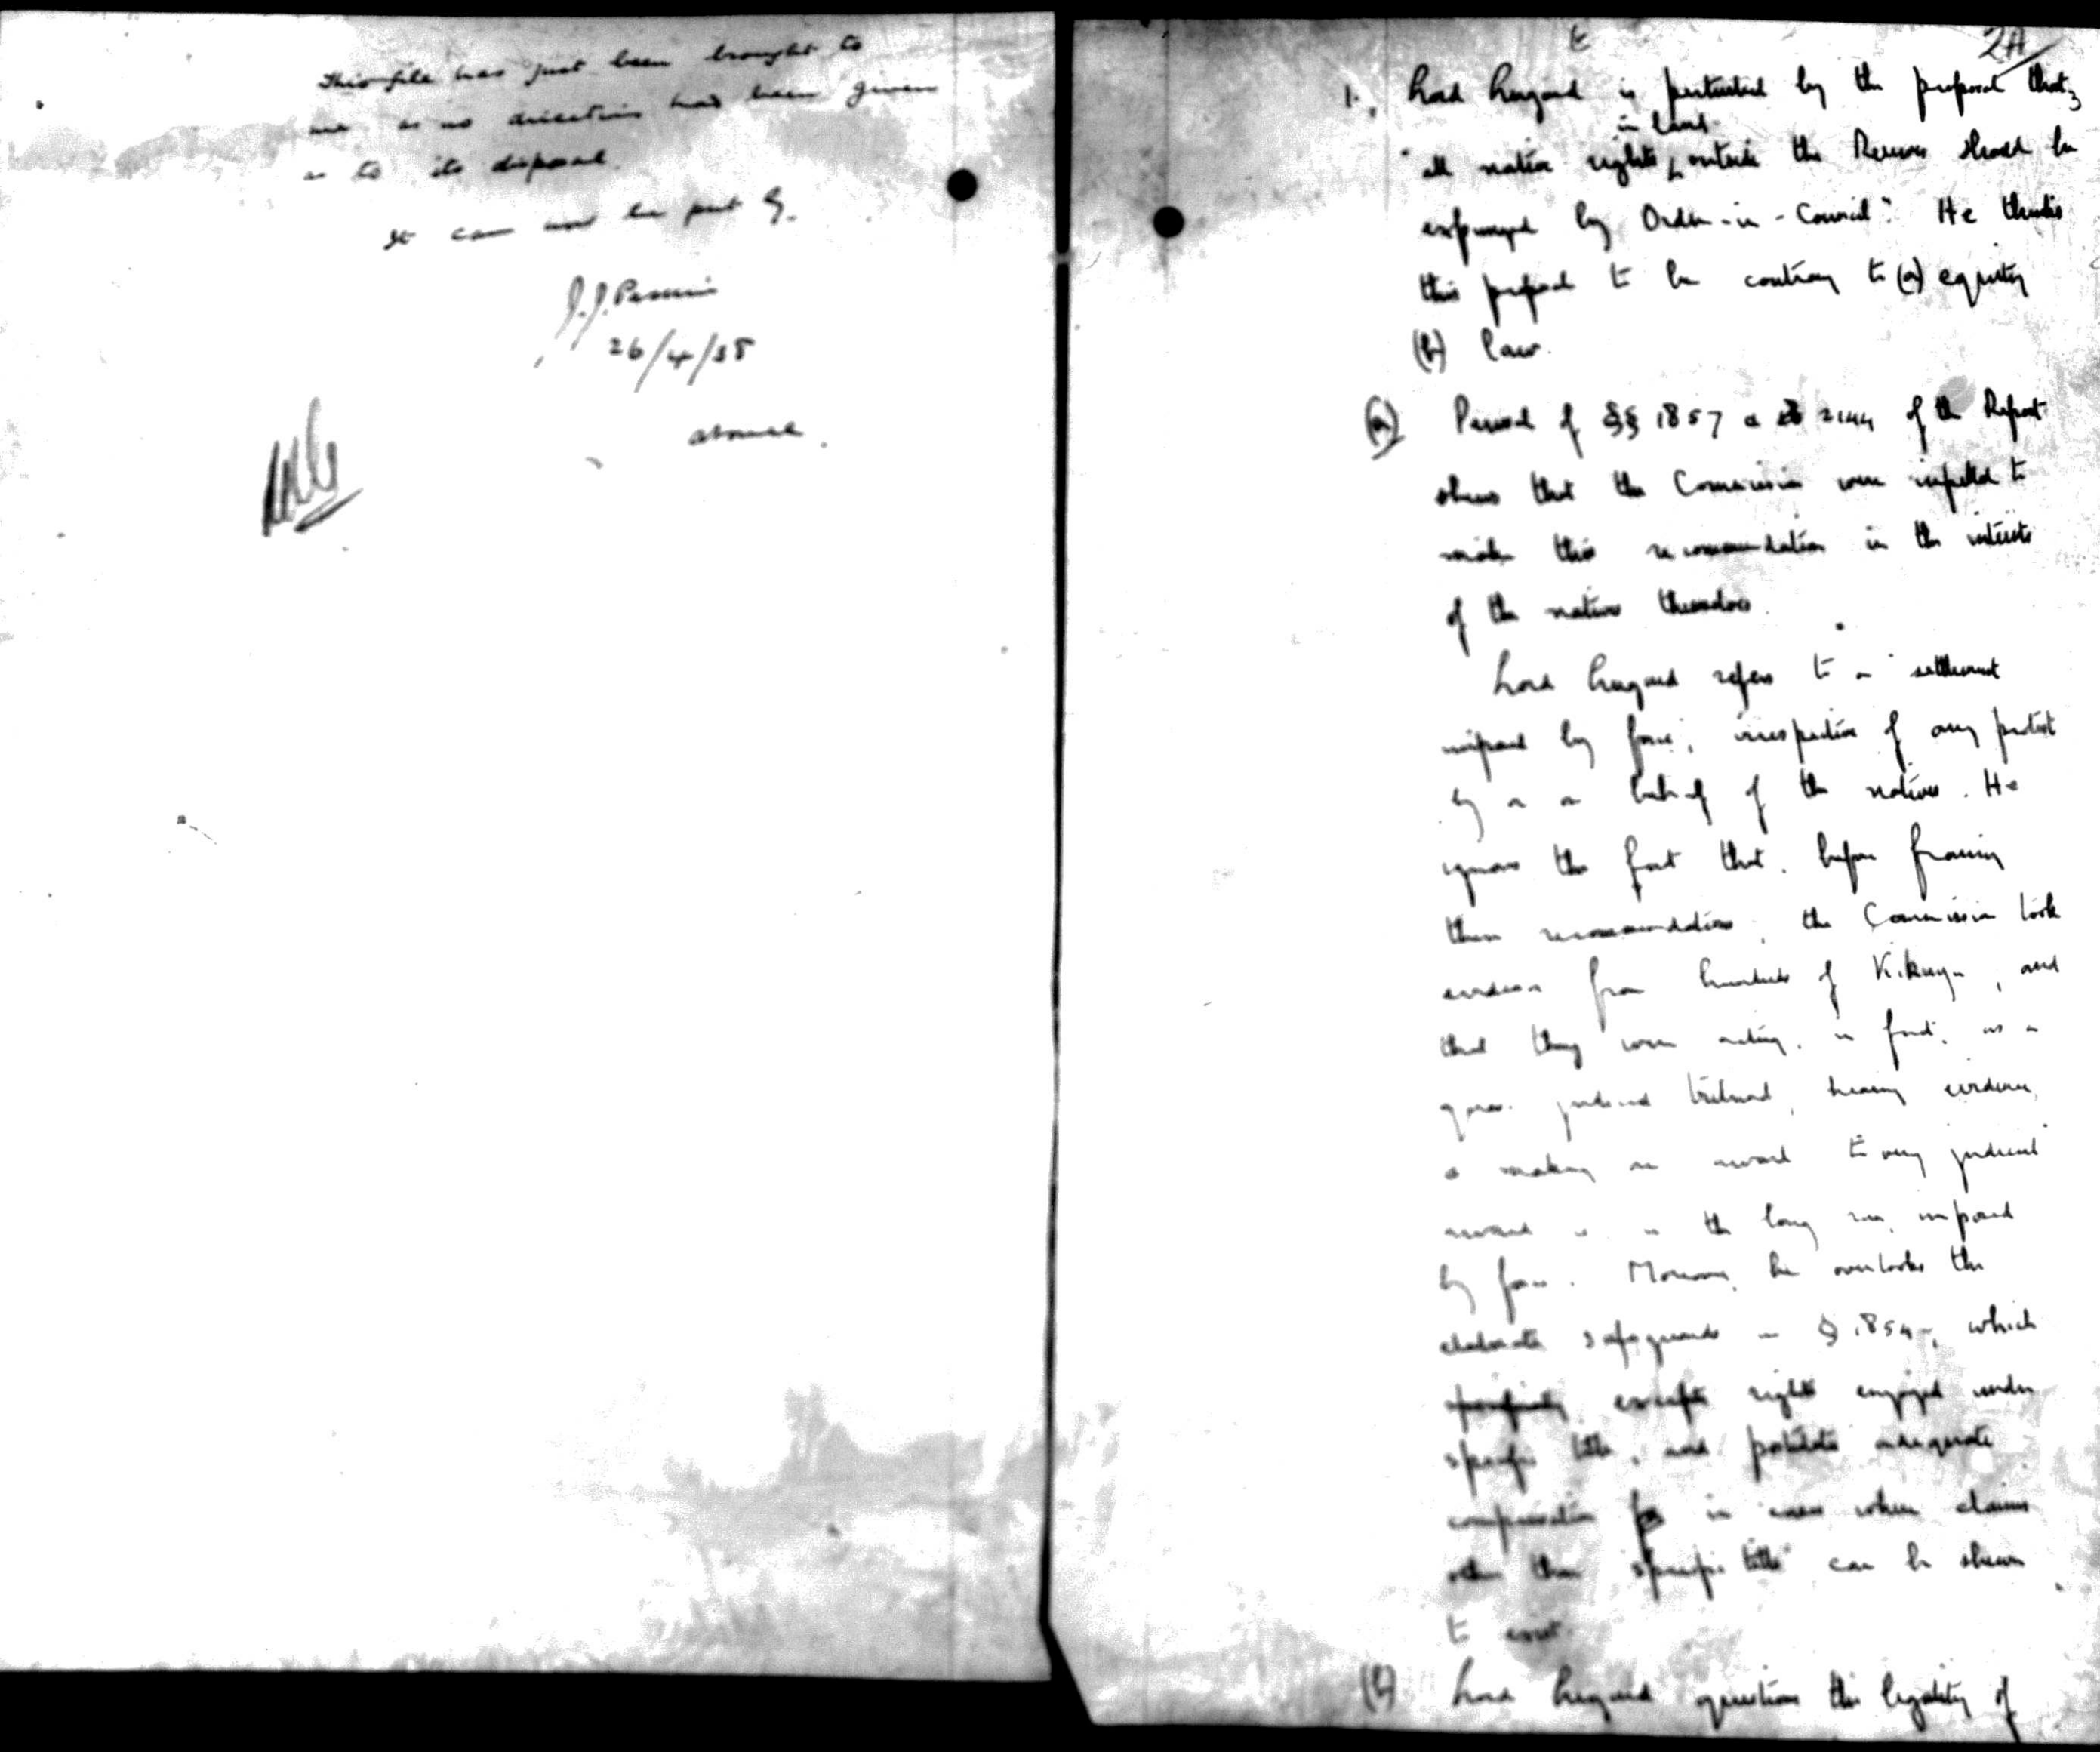 This file has just been brought to
me as no direction had been given
as to its disposal.
It can now be put by.
J.J. Paskin
26/4/35
at once.
2A
1. Lord Lugard is perturbed by the proposal that
"all native rights in land outside the Reserves should be
expunged by Order-in-Council". He thinks
this proposal to be contrary to (a) equity
(b) law.
(a) Perusal of §§ 1857 & 2144 of the Report
shews that the Commission were impelled to
make this recommendation in the interests
of the natives themselves.
Lord Lugard refers to a settlement
imposed by force, irrespective of any protest
by or on behalf of the natives. He
ignores the fact that, before framing
these recommendations, the Commission took
evidence from hundreds of Kikuyu, and
that they were acting, in fact, as a
quasi judicial tribunal, hearing evidence,
& making an award. Every judicial
award is in the long run imposed
by force. Moreover, he overlooks the
elaborate safeguards in § 1854, which
excepts rights enjoyed under
specific title, and postulates adequate
compensation in cases where claims
other than "specific title" can be shewn
to exist.
(b) Lord Lugard questions the legality of